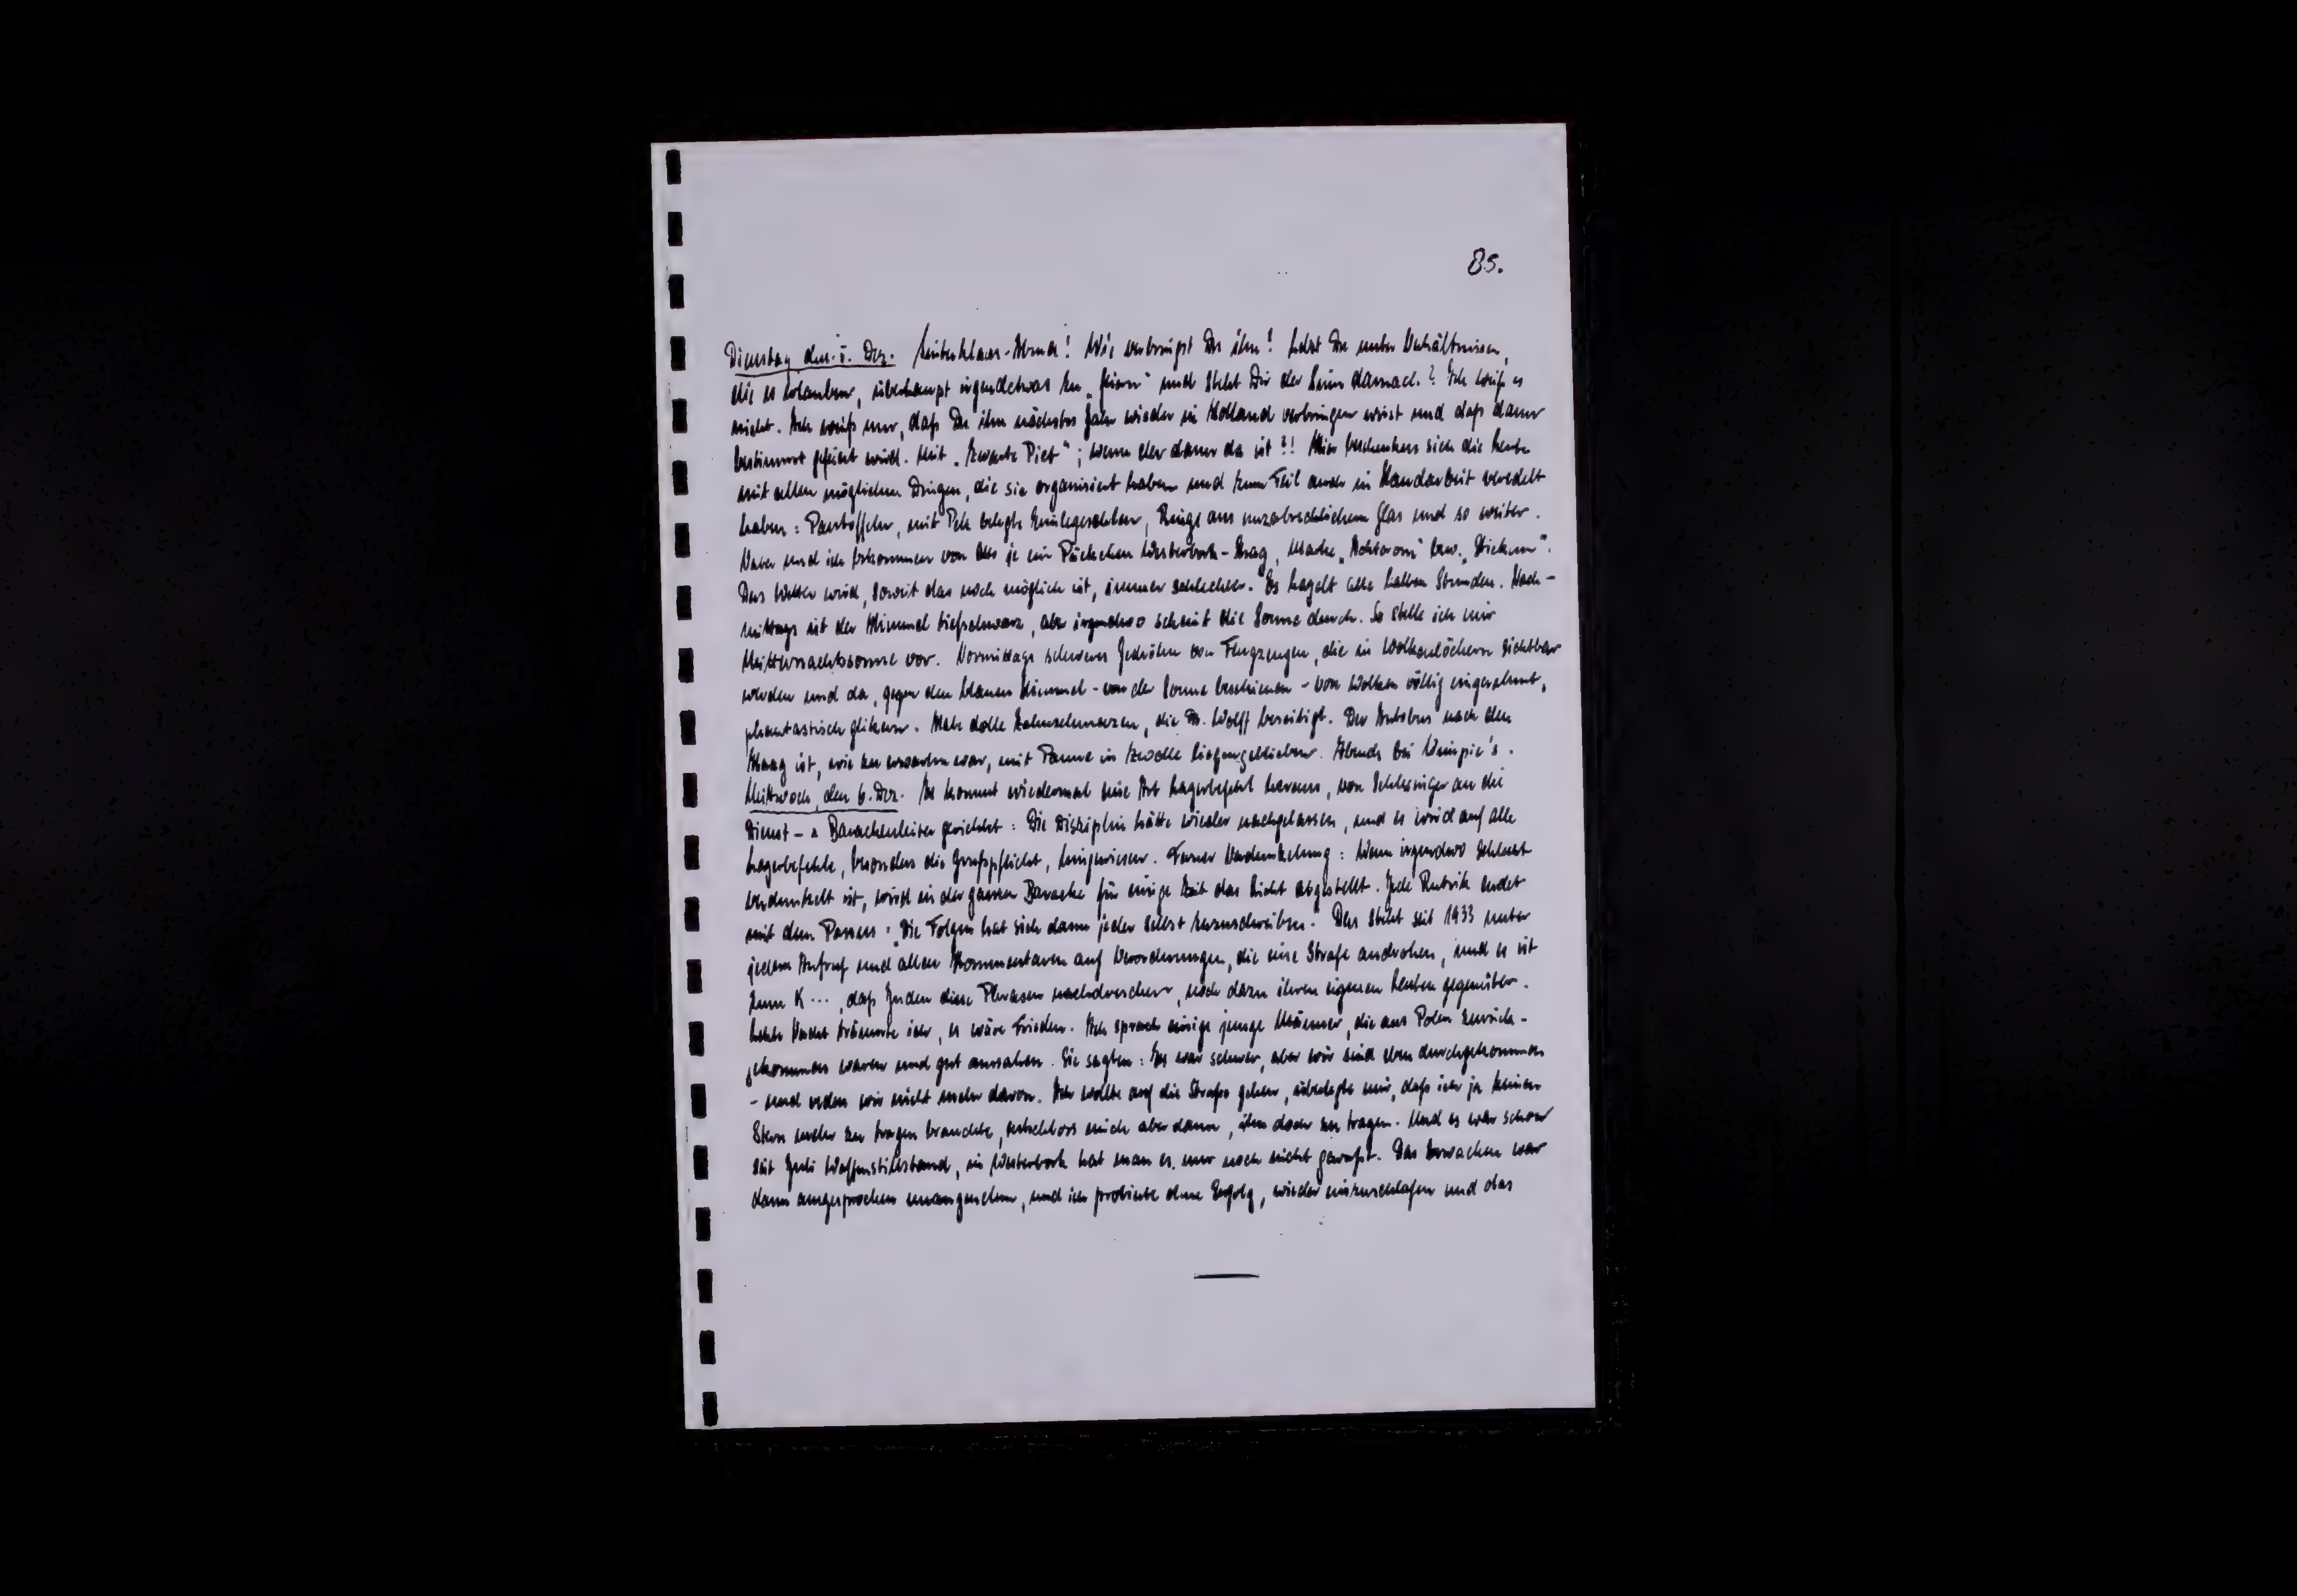 85.
Dienstag den 5. Dez. Sinterklaas-Abend! Wie verbringst Du ihn? Lebst Du unter Verhältnissen,
die es erlauben, überhaupt irgendetwas zu „feiern“ und steht Dir der Sinn darnach? Ich weiß es
nicht. Ich weiß nur, daß Du ihn nächstes Jahr wieder in Holland verbringen wirst und daß dann
bestimmt gefeiert wird. Mit „Zwarte Piet“; wenn der dann da ist?! Hier beschenken sich die Leute
mit allen möglichen Dingen, die sie organisiert haben und zum Teil auch in Handarbeit veredelt
haben: Pantoffeln, mit Pelz belegte Einlegesohlen, Ringe aus unzerbrechlichem Glas und so weiter.
und ich bekommen von je ein Päckchen Westerbork-Shag, Marke „ “ bzw. „Stiekum“.
Das Wetter wird, soweit das noch möglich ist, immer schlechter. Es hagelt alle halben Stunden. Nach-
mittags ist der Himmel tiefschwarz, aber irgendwo scheint die Sonne durch. So stelle ich mir
Mitternachtssonne vor. Vormittags schweres Gedröhn von Flugzeugen, die in Wolkenlöchern sichtbar
werden und da, gegen den blauen Himmel - von der Sonne beschienen - von Wolken völlig eingerahmt,
phantastisch glitzern. Habe dolle Zahnschmerzen, die Dr. Wolff beseitigt. Der Autobus nach dem
Haag ist, wie zu erwarten war, mit Panne in Zwolle liegengeblieben. Abends bei Wimpie's.
Mittwoch, den 6. Dez. Es kommt wiedermal eine Art Lagerbefehl heraus, von Schlesinger an die
Dienst- u Barackenleiter gerichtet: Die Disziplin hätte wieder nachgelassen, und es wird auf alle
Lagerbefehle, besonders die Grußpflicht, hingewiesen. Ferner Verdunkelung: Wenn irgendwo schlecht
verdunkelt ist, wird in der ganzen Baracke für einige Zeit das Licht abgestellt. Jede Rubrik endet
mit dem Passus: „Die Folgen hat sich dann jeder selbst zuzuschreiben.“ Das steht seit 1933 unter
jedem Aufruf und allen Kommentaren auf Verordnungen, die eine Strafe androhen, und es ist
zum K..., daß Juden diese Phrasen nachdreschen, noch dazu ihren eigenen Leuten gegenüber.
Letzte Nacht träumte ich, es wäre Frieden. Ich sprach einige junge Männer, die aus Polen zurück-
gekommen waren und gut aussahen. Sie sagten: Es war schwer, aber wir sind eben durchgekommen
- und reden wir nicht mehr davon. Ich wollte auf die Straße gehen, überlegte mir, daß ich ja keinen
Stern mehr zu tragen brauchte, entschloss mich aber dann, ihn doch zu tragen. Und es war schon
seit Juli Waffenstillstand, in Westerbork hat man es nur noch nicht gewußt. Das Erwachen war
dann ausgesprochen unangenehm, und ich probierte ohne Erfolg, wieder einzuschlafen und das